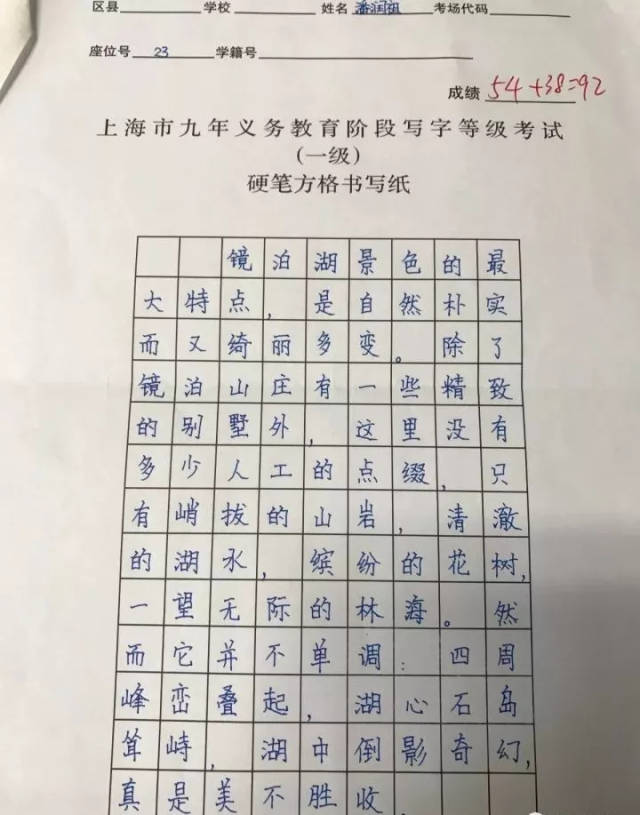 区县 学校 姓名 潘润祖 考场代码
座位号 23 学籍号
成绩 54+38=92
上海市九年义务教育阶段写字等级考试
(一级)
硬笔方格书写纸
镜泊湖景色的最
大特点，是自然朴实
而又绮丽多变。除了
镜泊山庄有一些精致
的别墅外，这里没有
多少人工的点缀，只
有峭拔的山岩，清澈
的湖水，缤纷的花树，
一望无际的林海。然
而它并不单调：四周
峰峦叠起，湖心石岛
耸峙，湖中倒影奇幻，
真是美不胜收.